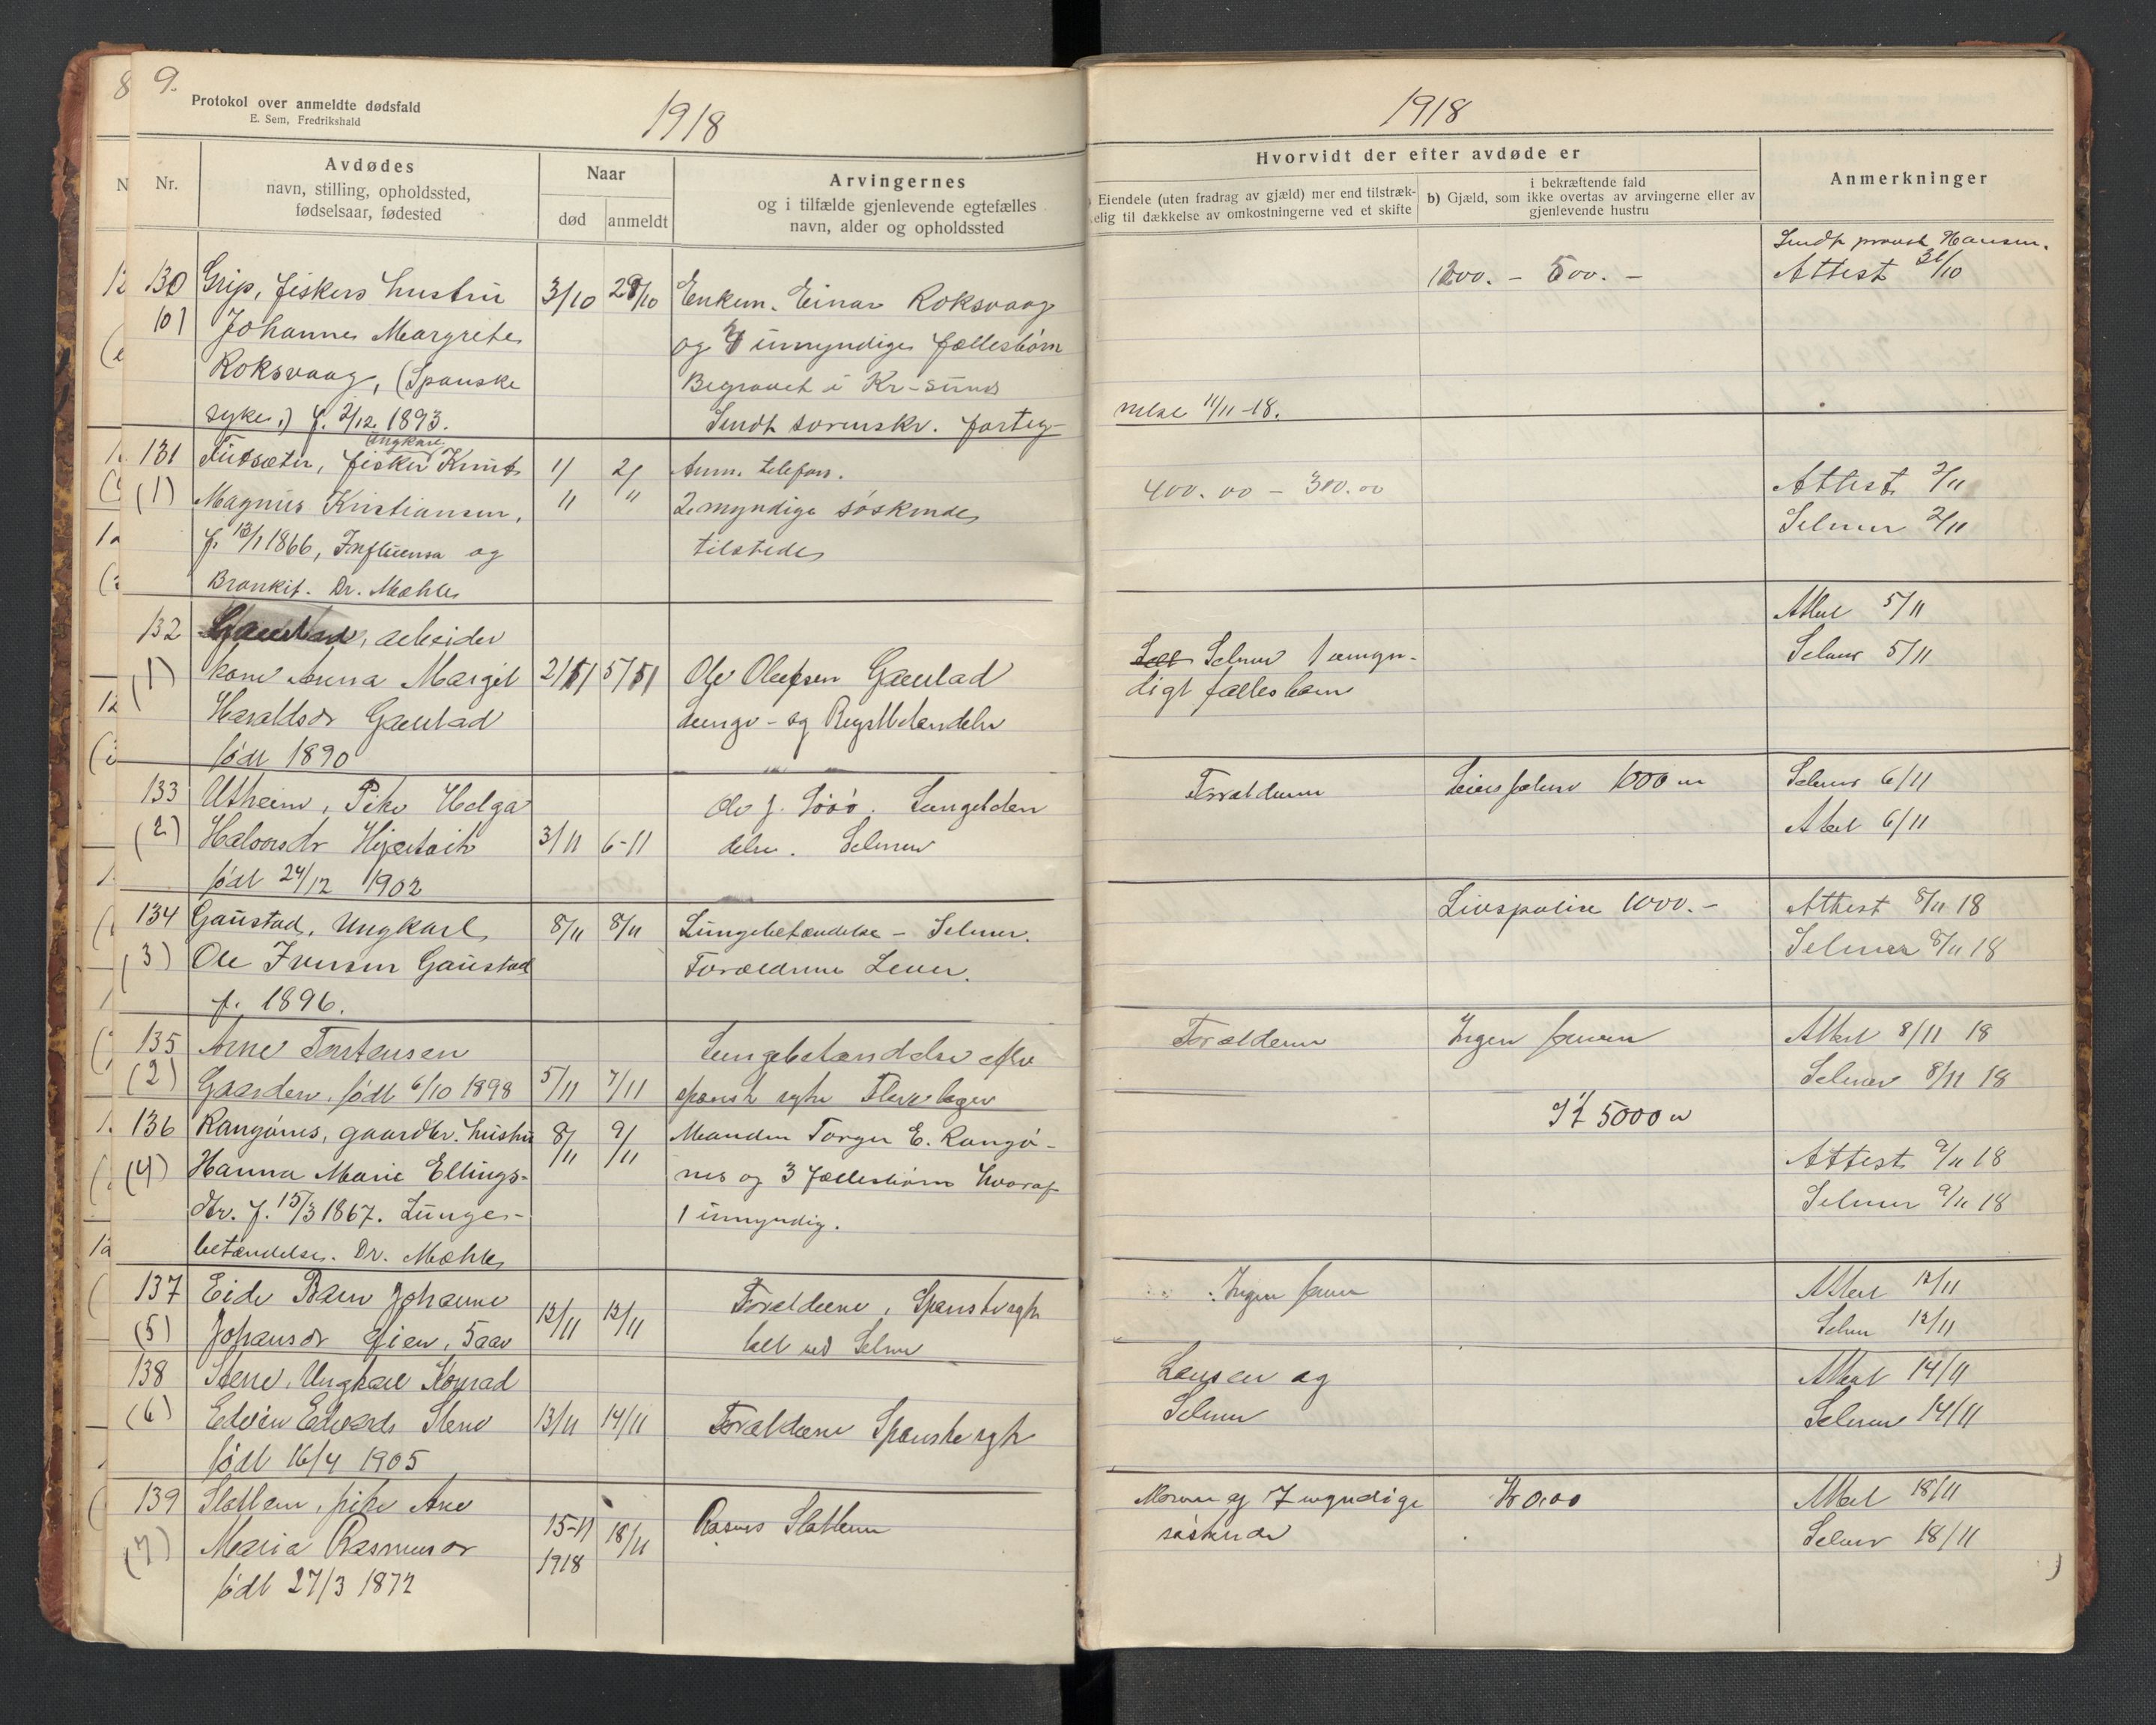 8
9.
Protokol over anmeldte dødsfald
E. Sem, Fredrikshald
1918
Nr.
Avdødes
navn, stilling, opholdssted,
fødselsaar, fødested
Naar
død
anmeldt
Arvingernes
og i tilfælde gjenlevende egtefælles
navn, alder og opholdssted
130 Grip, fiskers hustru 3/10 28/10 Enkem. Einar Roksvaag
Johanne Margrethe og 4 umyndige fællesbørn
Roksvaag, (Spanske Begravet i Kr-sund
syke.) f. 2/12 1893. Sendt sorenskr.forteg-
131 Futsæter, fisker Knut 1/11 2/11 Anm. telefon.
Ungkarl
(1) Magnus Kristiansen, 2 myndige søskende
f. 13/1 1866, Influensa og tilstede
Bronkit. Dr. Mæhle
132 Gaustad, arbeider
(1) kone Anna Margit 2/11 5/11 Ole Olufsen Gaustad
Haraldsdr Gaustad Lunge- og
født 1890
133 Utheim, Pike Helga
(2) Halvorsdr 3/11 6-11 Selmer
født 24/12 1902
134 Gaustad, Ungkarl 8/11 8/11 Lungebetændelse - Selmer.
(3) Ole Iversen Gaustad Forældrene Lever.
f. 1896.
135 Arne Torstensen Lungebetændelse efter
(2) Gaarden, født 6/10 1898 5/11 7/11 spansk syke
136 Rangønes, gaardbr. hustru 8/11 9/11 Manden Torger E. Rangø-
(4) Hanna Marie Ellings- nes og 3 fællesbørn hvoraf
dtr. f. 15/3 1867. Lunge- 1 umyndig.
betændelse. Dr. Mæhle
137 Eide Barn Johanne 12/11 12/11 Forældrene, Spanskesyke
(5) Johansdr 5 aar Selmer
138 Stene, Ungkarl Konrad
(6) Edvin Edvards Stene 13/11 14/11 Forældrene Spanskesyke
født 16/4 1905
139 Slatlem, pike Ane Rasmus Slatlem
(7) Maria Rasmusdr 15-11 1918 18/11
født 27/3 1872
1918
Hvorvidt der efter avdøde er
Eiendele (uten fradrag av gjæld) mer end tilstræk-
kelig til dækkelse av omkostningerne ved et skifte
i bekræftende fald
b) Gjæld, som ikke overtas av arvingerne eller av
gjenlevende hustru
Anmerkninger
Sendt provst Hansen.
1200. - 500. - Attest 31/10
nelse 11/11-18.
400.00 - 300.00 Attest 2/11
Selmer 2/11
Attest 5/11
Selmer 1 umyn- Selmer 5/11
digt fællesbarn
Forældrene 1000 Selmer 6/11
Attest 6/11
Livspolice 1000.- Attest 8/11 18
Selmer 8/11 18
Forældrene Ingen Attest 8/11 18
Selmer 8/11 18
5000
Attest 9/11 18
Selmer 9/11 18
Ingen Attest 12/11
Selmer 12/11
Lensen og Attest 14/11
Selmer Selmer 14/11
Moren og 7 myndige Kr 0,00 Attest 18/11
søskende Selmer 18/11